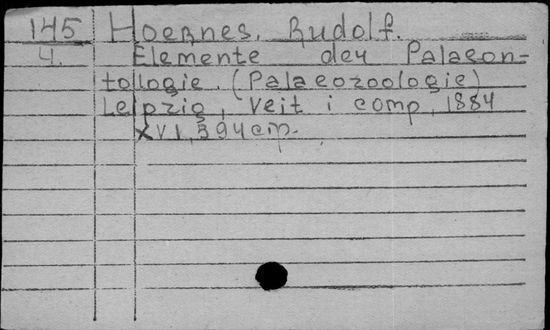 145 Hoernes, Rudolf.
4. Elemente der Palaeon-
tologie. (Palaeozoologie)
Leipzig, Veit i comp, 1884
XVI, 594